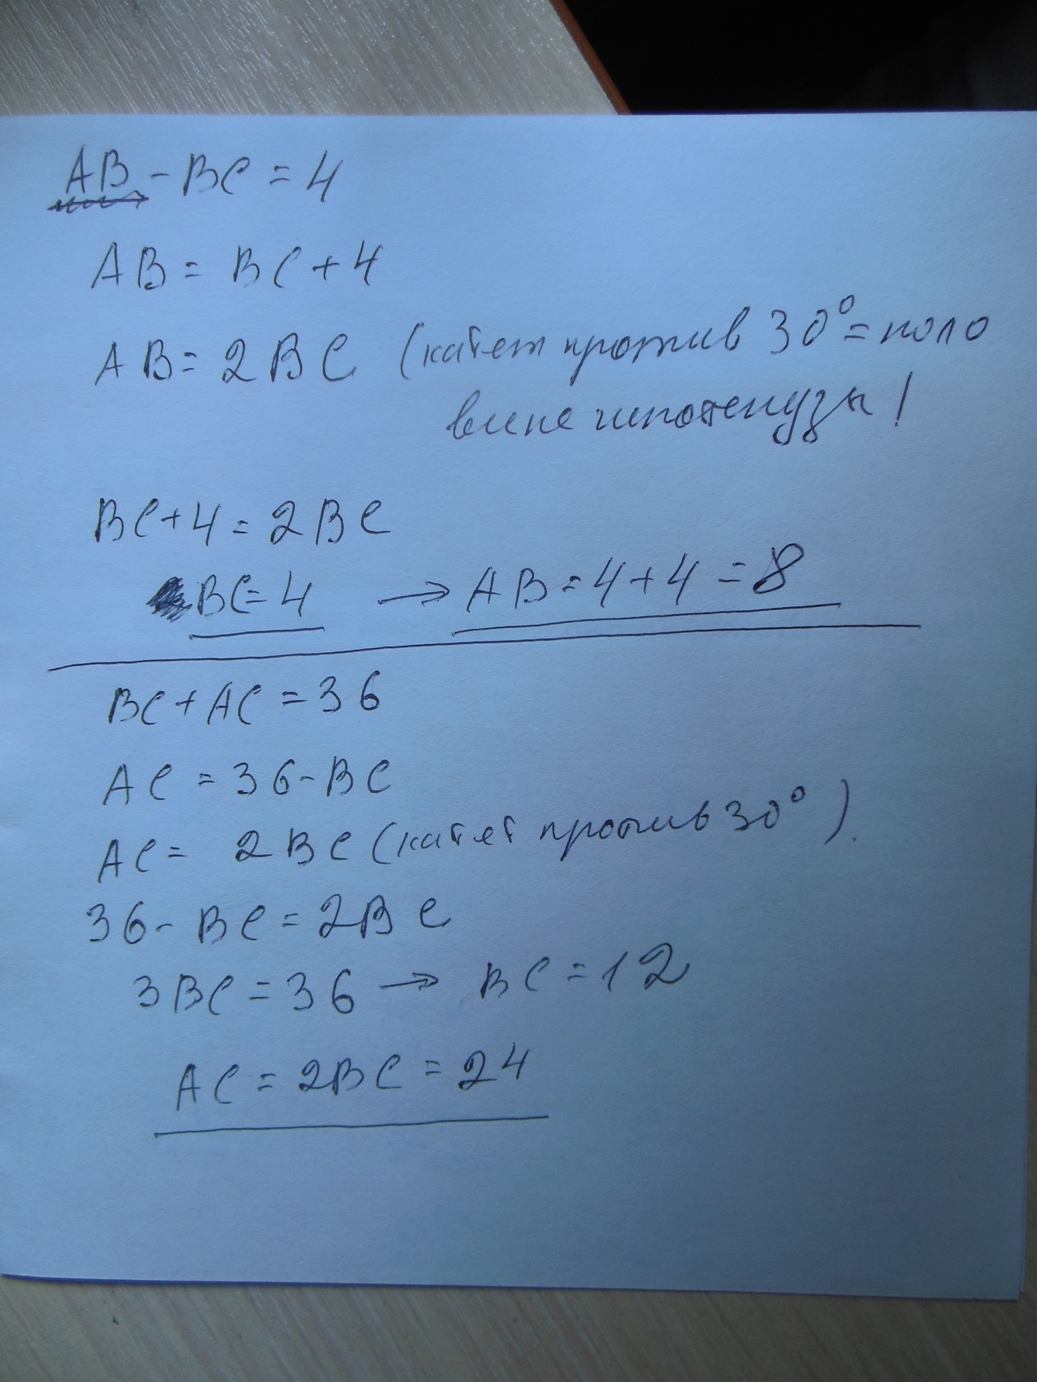 AB - BC = 4
AB = BC + 4
AB = 2BC (катет против 30° = поло
вине гипотенузы!
BC + 4 = 2BC
BC = 4 → AB = 4 + 4 = 8
BC + AC = 36
AC = 36 - BC
AC = 2BC (катет против 30°).
36 - BC = 2BC
3BC = 36 → BC = 12
AC = 2BC = 24